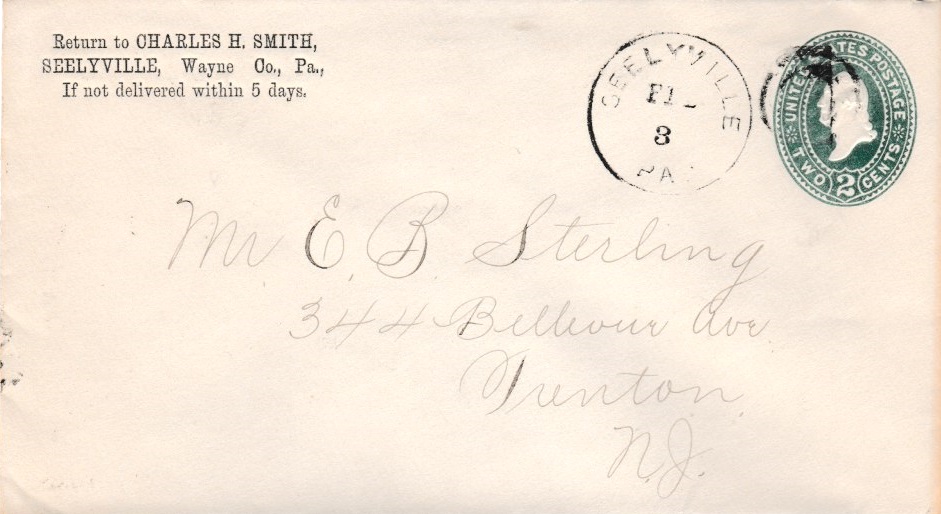 Return to CHARLES H. SMITH,
SEELYVILLE, Wayne Co., Pa.,
If not delivered within 5 days.
SEELYVILLE
8
PA
UNITED STATES POSTAGE
TWO 2 CENTS
Mr E. B. Sterling
344 Bellevue Ave
Trenton
N.J.